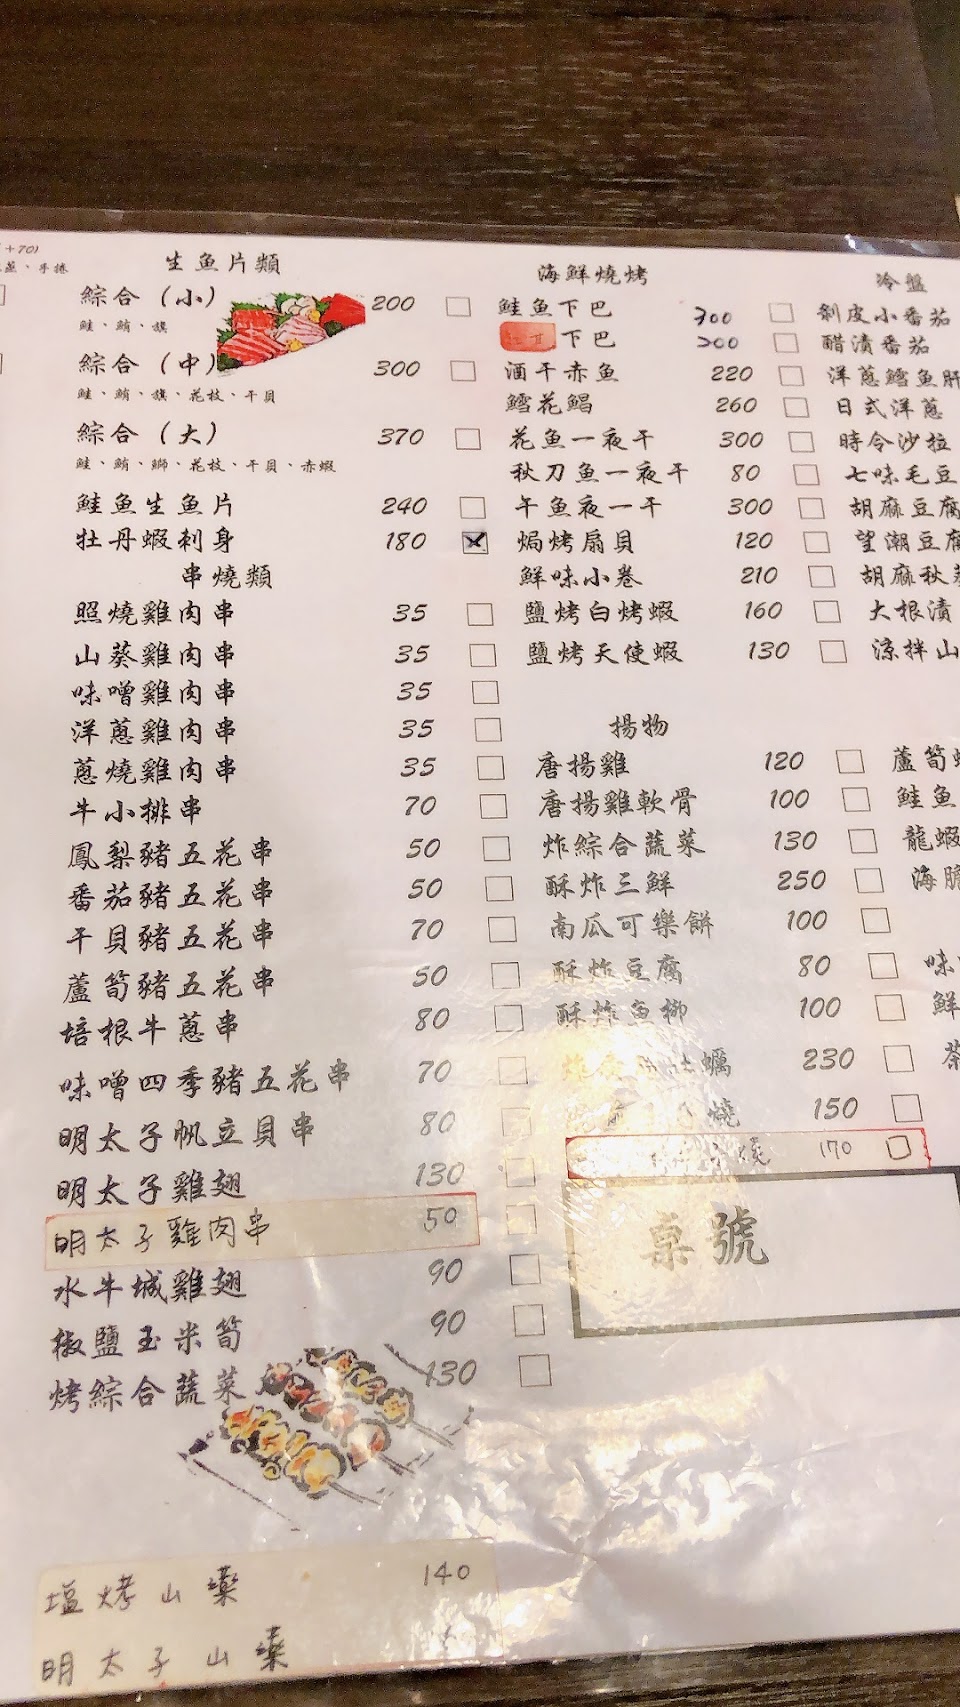 ＋70)
手捲
生魚片類
綜合（小） 200
鮭、鮪、旗
綜合（中） 300
鮭、鮪、旗、花枝、干貝
綜合（大） 370
鮭、鮪、鰤、花枝、干貝、赤蝦
鮭魚生魚片 240
牡丹蝦刺身 180
串燒類
照燒雞肉串 35
山葵雞肉串 35
味噌雞肉串 35
洋蔥雞肉串 35
蔥燒雞肉串 35
牛小排串 70
鳳梨豬五花串 50
番茄豬五花串 50
干貝豬五花串 70
蘆筍豬五花串 50
培根牛蔥串 80
味噌四季豬五花串 70
明太子帆立貝串 80
明太子雞翅 130
明太子雞肉串 50
水牛城雞翅 90
椒鹽玉米筍 90
烤綜合蔬菜 130
塩烤山藥 140
明太子山藥
海鮮燒烤
鮭魚下巴 300
下巴 200
酒干赤魚 220
鱈花鯧 260
花魚一夜干 300
秋刀魚一夜干 80
午魚夜一干 300
焗烤扇貝 120
鮮味小卷 210
鹽烤白烤蝦 160
鹽烤天使蝦 130
揚物
唐揚雞 120
唐揚雞軟骨 100
炸綜合蔬菜 130
酥炸三鮮 250
南瓜可樂餅 100
酥炸豆腐 80
酥炸魚柳 100
炸 蠣 230
燒 150
燒 170
桌號
冷盤
剝皮小番茄
醋漬番茄
洋蔥鱈魚肝
日式洋蔥
時令沙拉
七味毛豆
胡麻豆腐
望潮豆腐
胡麻秋葵
大根漬
涼拌山
蘆筍
鮭魚
龍蝦
海膽
味
鮮
茶